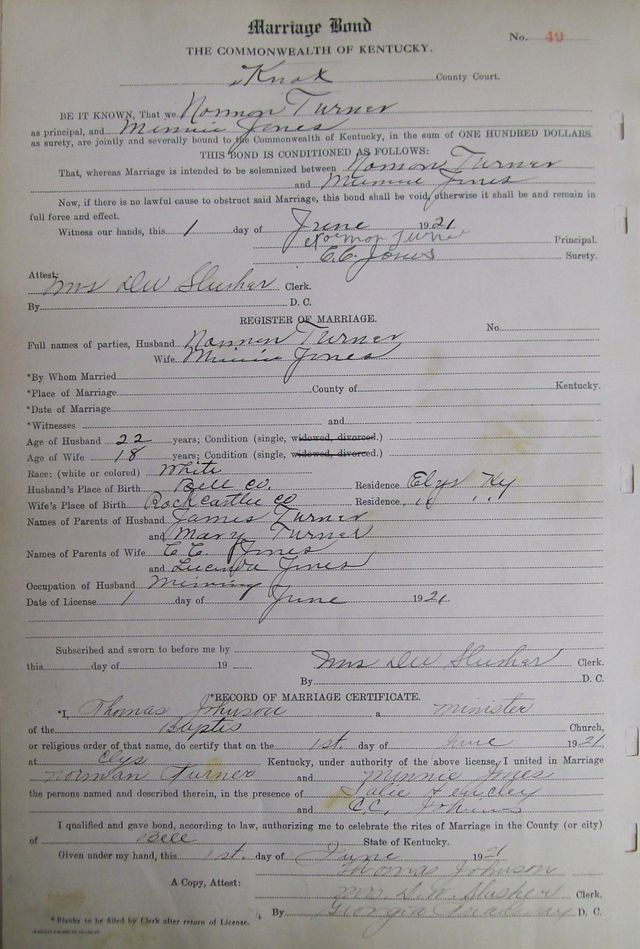 Marriage Bond
No. 49
THE COMMONWEALTH OF KENTUCKY.
Knox County Court.
BE IT KNOWN, That we Normon Turner
as principal, and Minnie Jones
as surety, are jointly and severally bound to the Commonwealth of Kentucky, in the sum of ONE HUNDRED DOLLARS
THIS BOND IS CONDITIONED AS FOLLOWS:
That, whereas Marriage is intended to be solemnized between Normon Turner
and Minnie Jones
Now, if there is no lawful cause to obstruct said Marriage, this bond shall be void, otherwise it shall be and remain in
full force and effect.
Witness our hands, this 1 day of June 1921
Normon Turner Principal.
C.C. Jones Surety.
Attest:
Mrs DW Slusher Clerk.
By D. C.
REGISTER OF MARRIAGE.
No.
Full names of parties, Husband Normon Turner
Wife Minnie Jones
*By Whom Married
*Place of Marriage County of Kentucky.
*Date of Marriage
*Witnesses and
Age of Husband 22 years; Condition (single, widowed, divorced.)
Age of Wife 18 years; Condition (single, widowed, divorced.)
Race: (white or colored) White
Husband's Place of Birth Bell Co. Residence Elys Ky
Wife's Place of Birth Rockcastle Co Residence " "
Names of Parents of Husband James Turner
and Mary Turner
Names of Parents of Wife C.C. Jones
and Lucinda Jones
Occupation of Husband Mining
Date of License 1 day of June 1921
Subscribed and sworn to before me by
this day of 19 Mrs DW Slusher Clerk.
By D. C.
*RECORD OF MARRIAGE CERTIFICATE.
*I, Thomas Johnson a minister
of the Baptis Church,
or religious order of that name, do certify that on the 1st. day of June 1921
at Elys Kentucky, under authority of the above license, I united in Marriage
Norman Turner and Minnie Jones
the persons named and described therein, in the presence of
and C.C.
I qualified and gave bond, according to law, authorizing me to celebrate the rites of Marriage in the County (or city)
of Bell State of Kentucky.
Given under my hand, this 1st. day of June 1921
Thomas Johnson
A Copy, Attest: Mrs D.W. Slusher Clerk.
By Georgia D. C.
*Blanks to be filled by Clerk after return of License.